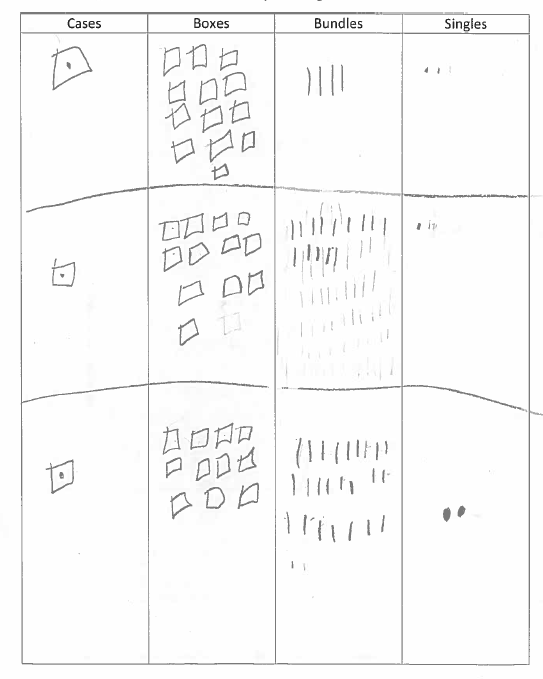 Cases Boxes Bundles Singles